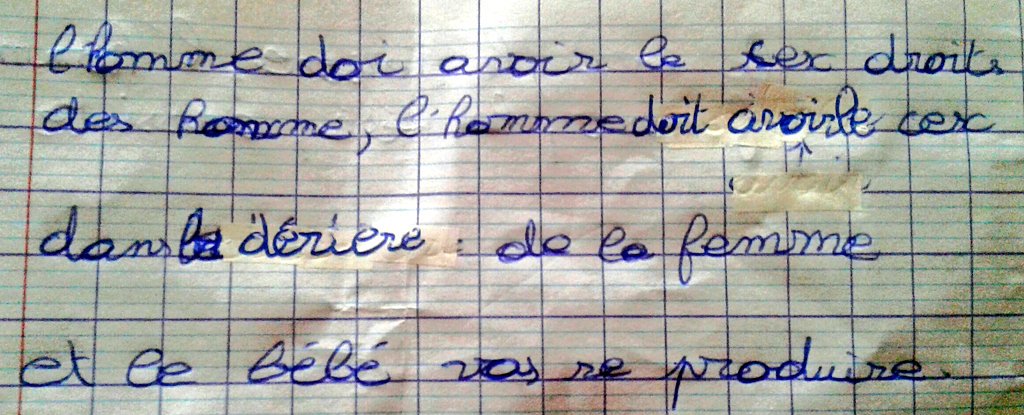 l'homme doi avoir le sex droit
des homme, l'homme doit avoir le cex
dans le dériere de la femme
et le bébé vas re produire.